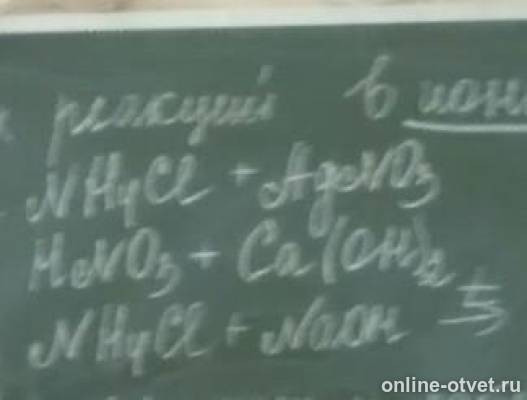 реакций в ион
NH4Cl + AgNO3
HNO3 + Ca(OH)2
NH4Cl + NaOH t→
online-otvet.ru